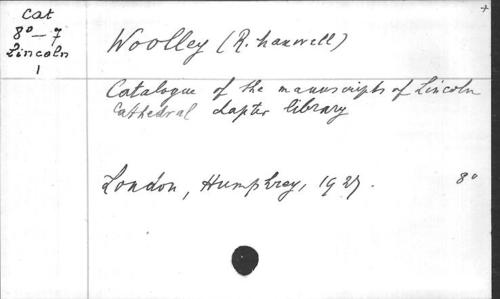 +
Cat
8° - 7
Lincoln
1
Woolley (R. Maxwell)
Catalogue of the manuscripts of Lincoln
Cathedral chapter library
London, Humphrey, 1927. 8°